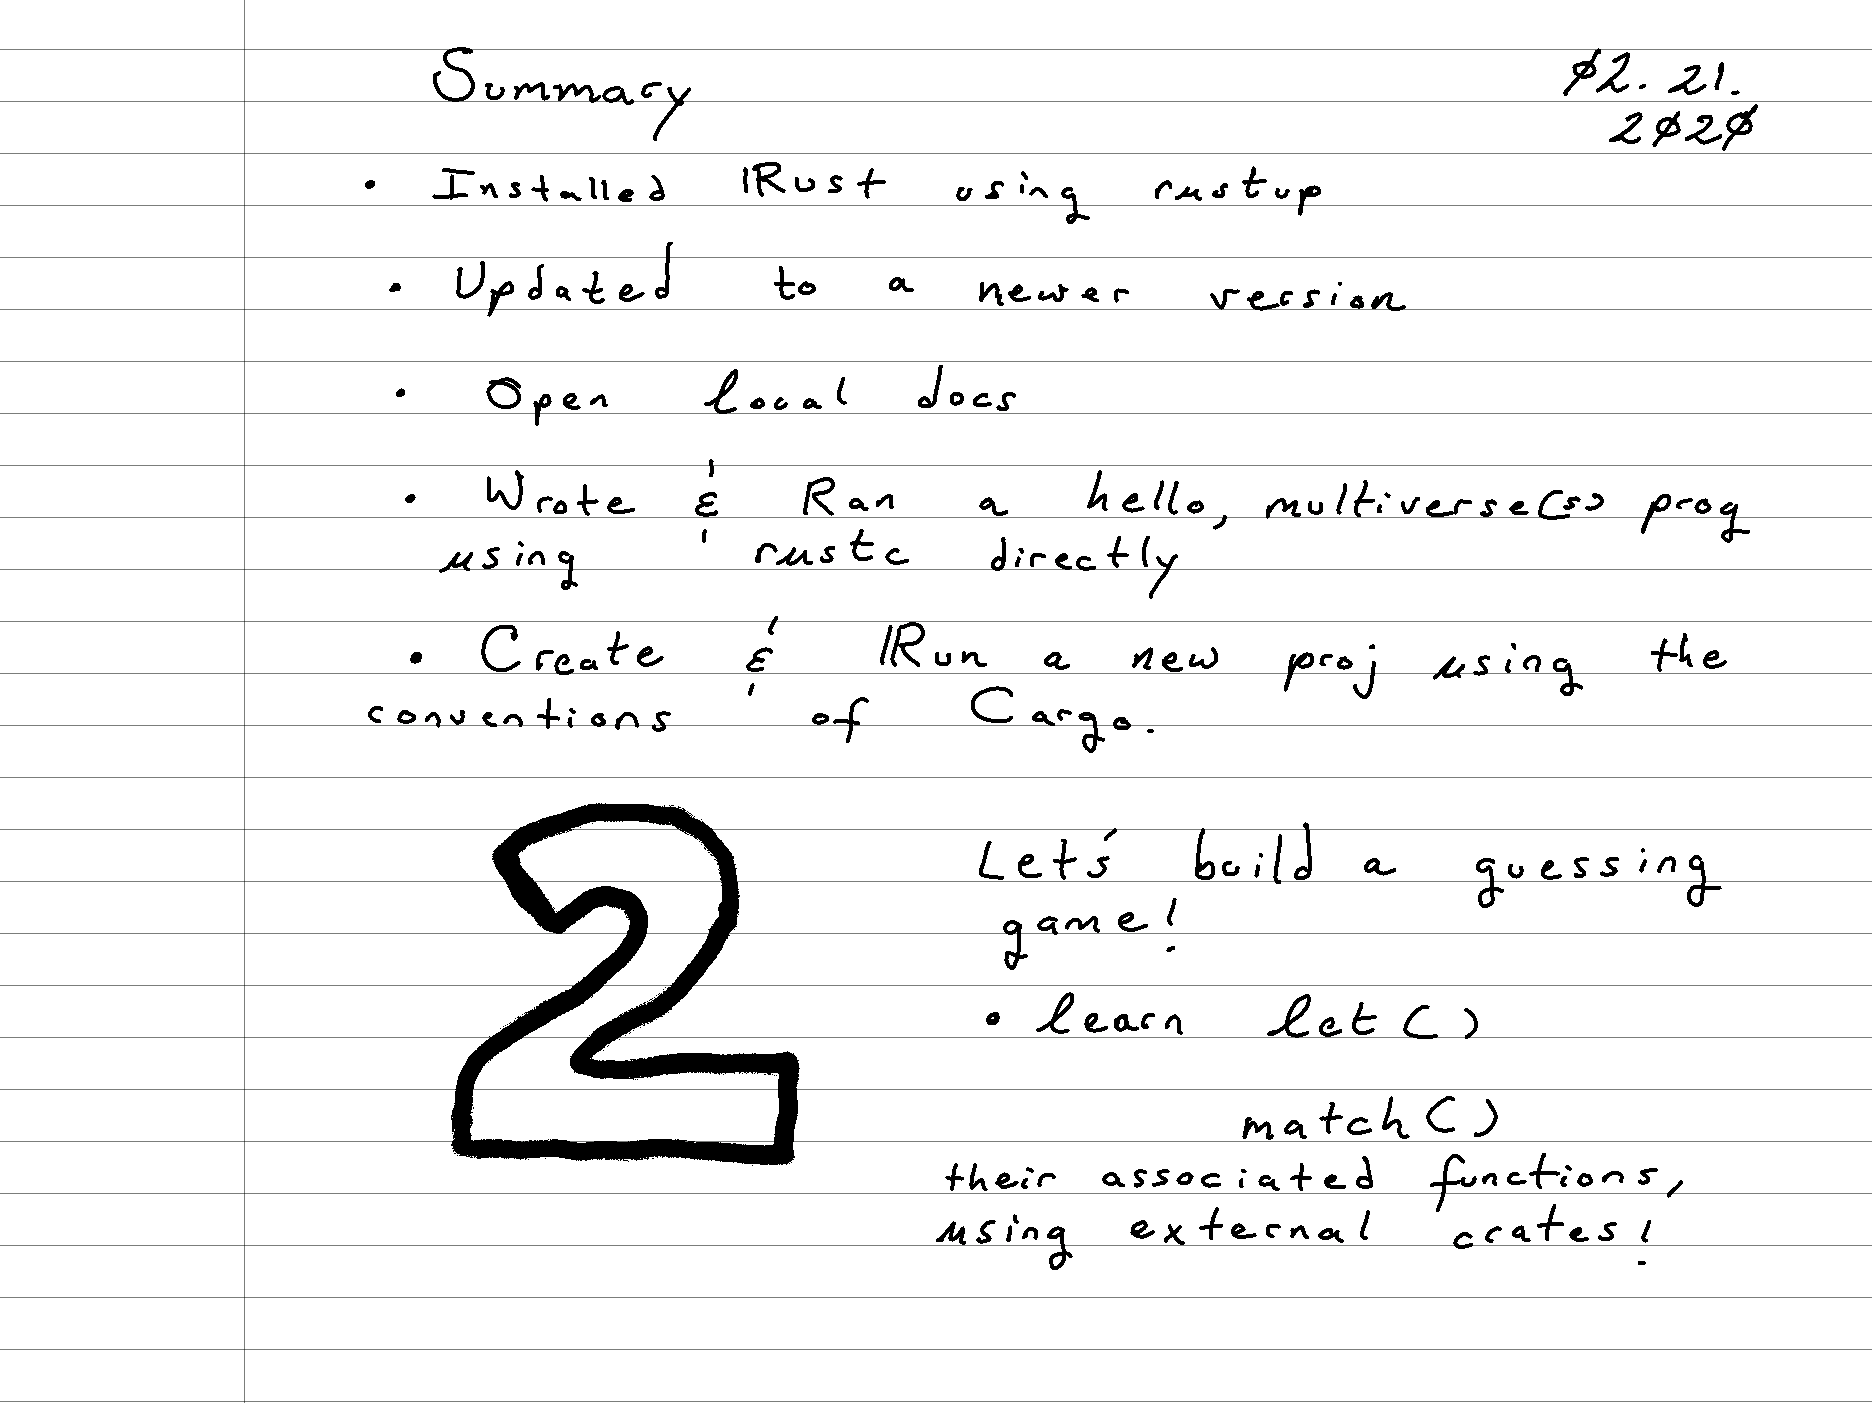 Summary
02. 21.
2020
• Installed Rust using rustup
• Updated to a newer version
• Open local docs
• Wrote & Ran a hello, multiverse(s) prog
using rustc directly
• Create & Run a new proj using the
conventions of Cargo.
2
Let's build a guessing
game!
• learn let()
match()
their associated functions,
using external crates!